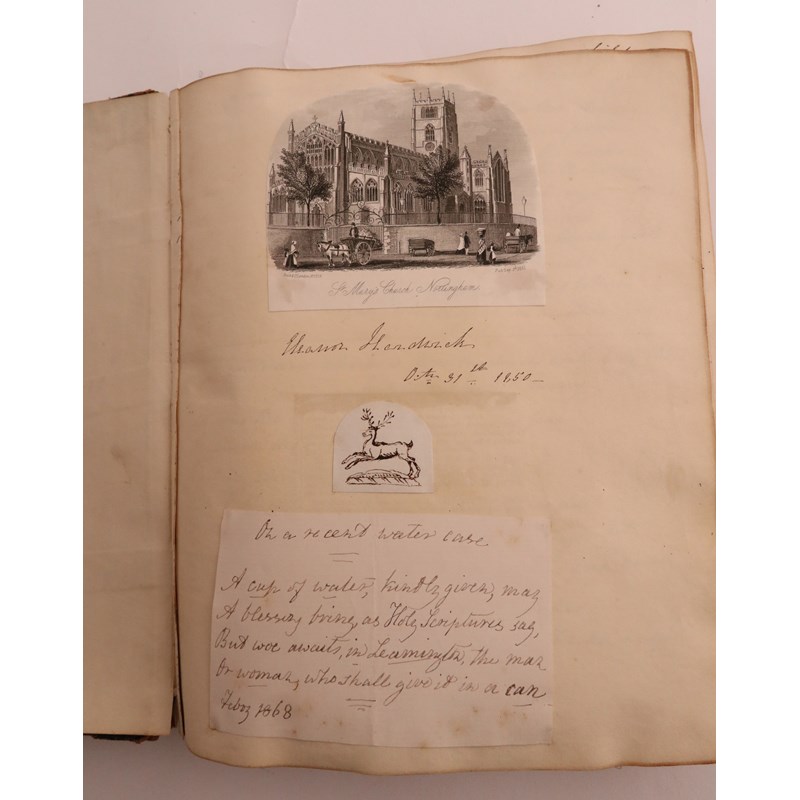 St. Mary's Church, Nottingham.
Eleanor Hendrick
Octr. 31st. 1850
On a recent water case
A cup of water, kindly given, may
A blessing bring, as Holy Scriptures say,
But woe awaits, in Leamington, the man
Or woman, who shall give it in a can
Feby 1868